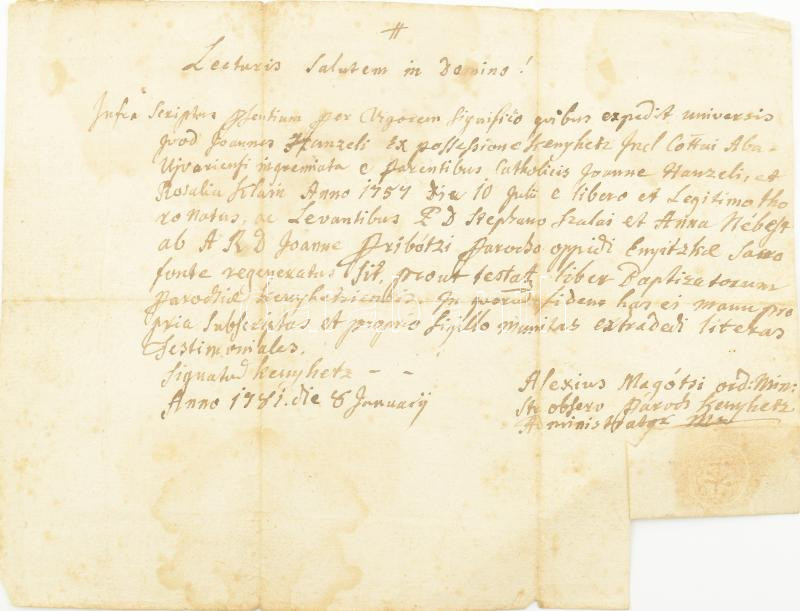 #
Lecturis Salutem in Domino!
Infra Scriptus pſentium per Vigorem Significo quibus expedit universis
quod Joannes Hanzeli Ex possessione Kenyhetz Incl Cottui Aba-
Ujvariensi ingremiata e parentibus Catholicis Joanne Hanzeli, et
Rosalia Anno 1757 Die 10 Julii e libero et Legitimo tho
ro natus, ac Levantibus P D Stephano Szalai et Anna
ab A R D Joanne Pribótzi Parocho oppidi Enyitzke Sacro
fonte regeneratus sit, prout testatr liber Baptizatorum
Parochiæ Kenyhetziensis. In quorum fidem has ei manu pro
pria Subscriptas et proprio Sigillo munitas extradedi literas
Testimoniales.
Signatū Kenyhetz - -
Anno 1781. die 8 Januarij
Alexius Magótsi ord: Min:
Str observ Paroch Kenyhetz
Administrator